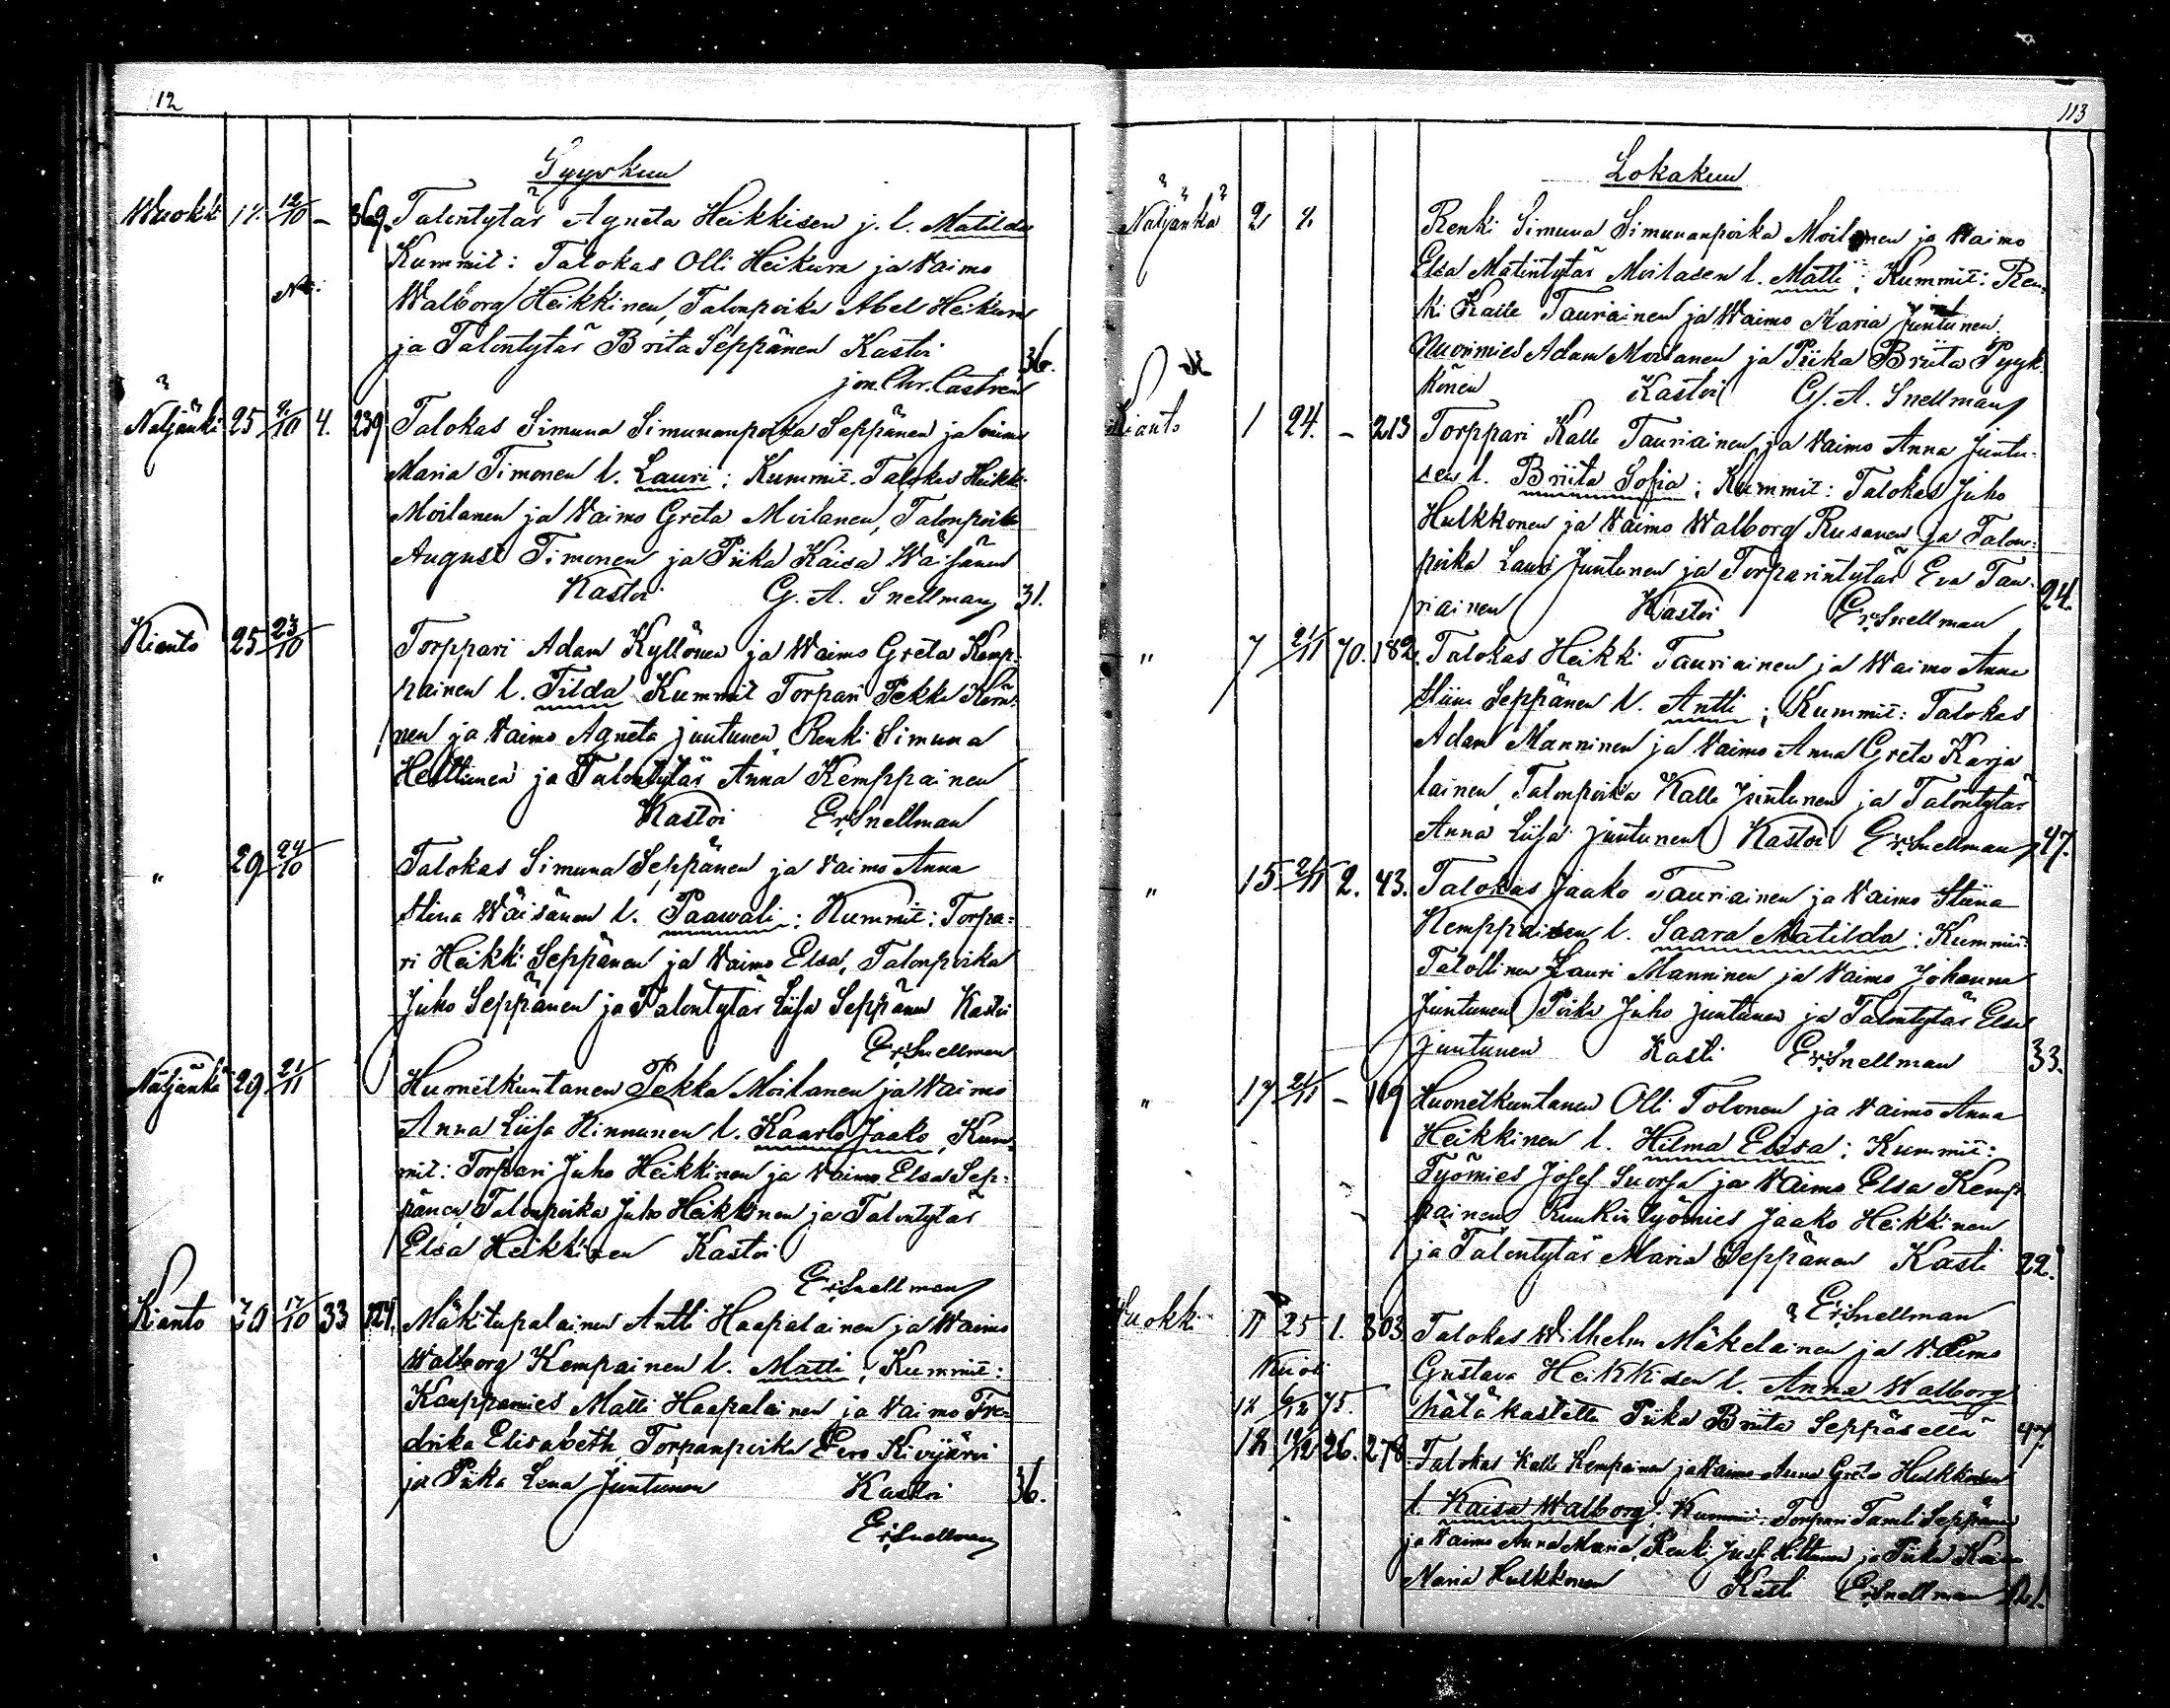 112
Syyskuu
Wuokki 14. 12/10 – 369. Talontytär Agneta Heikkisen j. l. Matilda
Kummit: Talokas Olli Heikura ja Vaimo
Walborg Heikkinen, Talonpoika Abel Heikura
ja Talontytär Brita Seppänen Kastoi 36.
joh. Chr. Castren
Näljänkä 25 4/10 4. 239 Talokas Simuna Simunanpoika Seppänen ja vaimo
Maria Timonen l. Lauri; Kummit. Talokas Heikki
Moilanen ja Vaimo Greta Moilanen, Talonpoika
August Timonen ja Piika Kaisa Wäisänen
Kastoi G. A. Snellman 31.
Kianto 25 23/10 Torppari Adam Kyllönen ja Waimo Greta Kemp-
painen l. Tilda Kummit Torpari Pekka
nen ja Vaimo Agneta Juntunen, Renki Simuna
Heltunen ja Talontytär Anna Kemppainen
Kastoi Er. Snellman
" 29 24/10 Talokas Simuna Seppänen ja Vaimo Anna
Stina Wäisänen l. Paawali; Kummit: Torpa-
ri Heikki Seppänen ja Waimo Elsa, Talonpoika
Juho Seppänen ja Talontytär Liisa Seppänen Kastoi
Er. Snellman
Näljänkä 29 21/11 Huonetkuntanen Pekka Moilanen ja Vaimo
Anna Liisa Kinnunen l. Kaarlo Jaako, Kum-
mit: Torpari Juho Heikkinen ja Vaimo Elsa Sep-
pänen, Talonpoika Juho Heikkinen ja Talontytär
Elsa Heikkinen Kastoi
Er. Snellman
Kianto 30 17/10 33 124. Mäkitupalainen Antti Haapalainen ja Waimo
Walborg Kempainen l. Matti; Kummit:
Kauppamies Matti Haapalainen ja Vaimo Fre-
drika Elisabeth, Torparipoika Eero Kivijärvi
ja Piika Lena Juntunen Kastoi 36.
Er. Snellman
113
Lokakuu
Näljänkä 2 4. Renki Simuna Simunanpoika Moilanen ja Waimo
Elsa Matintytär Moilasen l. Matti; Kummit: Ren-
ki Kalle Tauriainen ja Waimo Maria Juntunen.
Nuorimies Adam Moilanen ja Piika Briita Pyyk-
könen Kastoi G. A. Snellman
Kianto 1 24. – 213 Torppari Kalle Tauriainen ja Vaimo Anna Juntu-
sen l. Briita Sofia; Kummit: Talokas Juho
Hulkkonen ja Vaimo Walborg Rusanen ja Talon-
poika Lauri Juntunen ja Torparintytär Eva Tau-
riainen Kastoi Er. Snellman 24.
" 7 21/11 70. 182. Talokas Heikki Tauriainen ja Waimo Anna
Stiina Seppänen l. Antti; Kummit: Talokas
Adam Manninen ja Vaimo Anna Greta Karja
lainen, Talonpoika Kalle Juntunen ja Talontytär
Anna Liisa Juntunen Kastoi Er. Snellman 47.
" 15 21/11 2. 43. Talokas Jaako Tauriainen ja Vaimo Stiina
Kemppaisen l. Saara Matilda; Kummit:
Talollinen Lauri Manninen ja Vaimo Johanna
Juntunen Poika Juho Juntunen ja Talontytär Elsa
Juntunen Kasti Er. Snellman 33.
" 17 21/11 – 119 Huonetkuntanen Olli Tolonen ja Vaimo Anna
Heikkinen l. Hilma Elssa; Kummit:
Työmies Josef Suorsa ja Vaimo Elsa Kemp
painen Ruukin työmies Jaako Heikkinen
ja Talontytär Maria Seppänen Kasti 22.
Er. Snellman
Wuokki 11 25 1. 303. Talokas Wilhelm Mäkelainen ja Vaimo
Kuoli Gustava Heikkisen l. Anna Walborg
12 6/12 75. hätäkastettu Piika Briita Seppäsellä 47.
18 19/12 26. 278. Talokas Kalle Kempainen ja Vaimo Anna Greta Hulkkonen
l. Kaisa Walborg. Kummit: Torpari Taneli Seppänen
ja Vaimo Anna Maria, Renki Josf. Kiltunen ja Piika Kaisa
Maria Hulkkonen Kasti Er. Snellman 21.